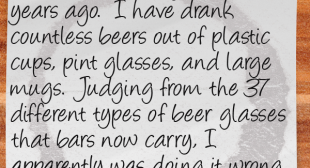 years ago.  I have drank
countless beers out of plastic
cups, pint glasses, and large
mugs.  Judging from the 37
different types of beer glasses
that bars now carry, I
apparently was doing it wrong